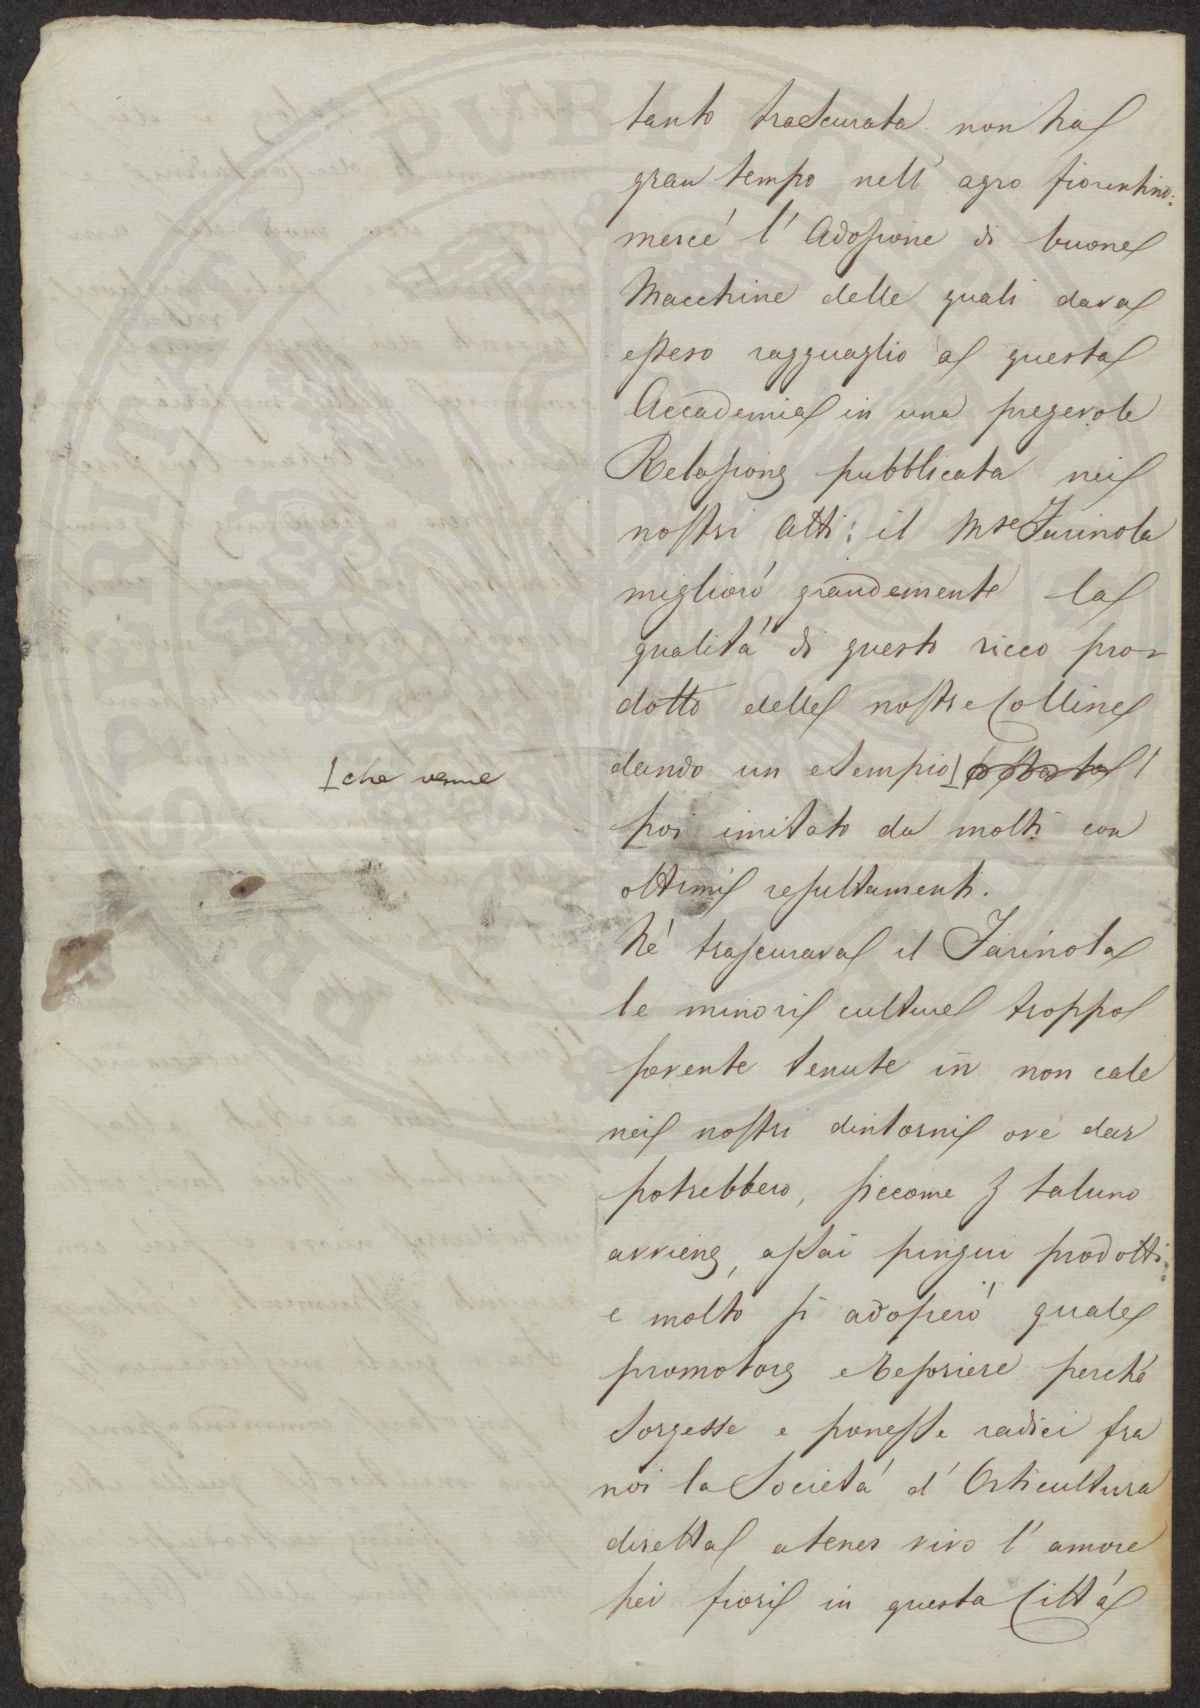 tanto trascurata non ha
gran tempo nell' agro fiorentino:
mercé l' Adozione di buone
Macchine delle quali dava
esteso ragguaglio a questa
Accademia in una pregevole
Relazione pubblicata nei
nostri Atti: il Mse Farinola
migliorò grandemente la
qualità di questo ricco pro-
dotto delle nostre Colline
dando un esempio
che venne
poi imitato da molti con
ottimi resultamenti.
Né trascurava il Farinola
le minori culture troppo
sovente tenute in non cale
nei nostri dintorni ove dar
potrebbero, siccome taluno
avviene, assai pingui prodotti
e molto si adoperò quale
promotore e Tesoriere perché
sorgesse e ponesse radici fra
noi la Società d' Orticultura
diretta a tener vivo l' amore
pei fiori in questa Città